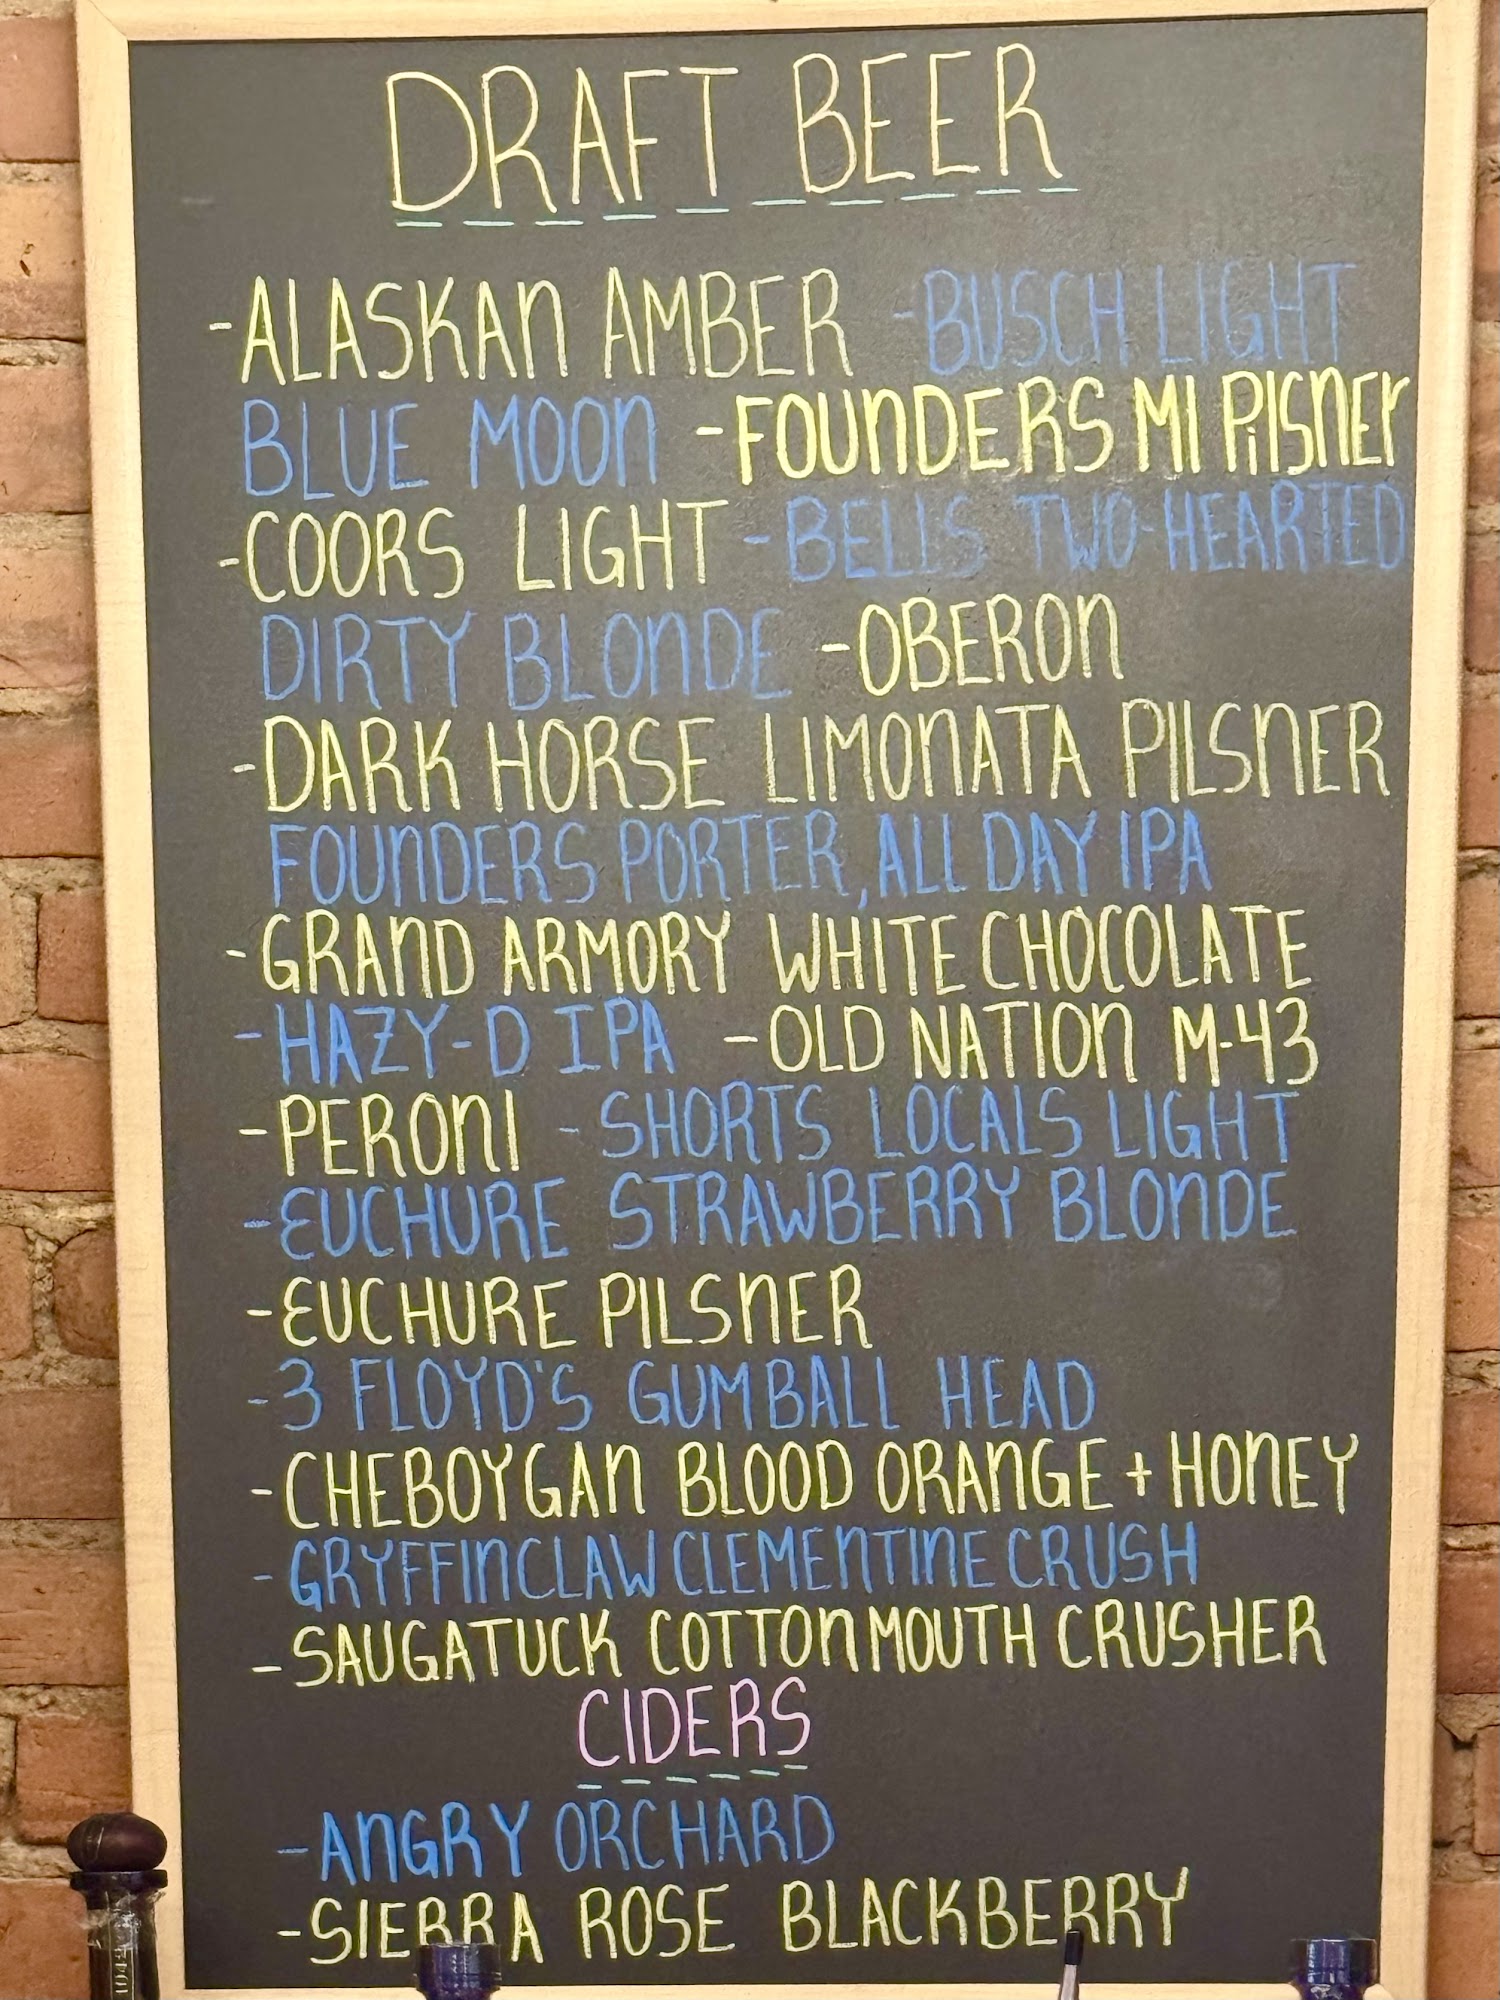 DRAFT BEER
-ALASKAN AMBER -BUSCH LIGHT
BLUE MOON -FOUNDERS MI PILSNER
-COORS LIGHT -BELLS TWO-HEARTED
DIRTY BLONDE -OBERON
-DARK HORSE LIMONATA PILSNER
FOUNDERS PORTER, ALL DAY IPA
-GRAND ARMORY WHITE CHOCOLATE
-HAZY-D IPA -OLD NATION M-43
-PERONI -SHORTS LOCALS LIGHT
-EUCHURE STRAWBERRY BLONDE
-EUCHURE PILSNER
-3 FLOYD'S GUMBALL HEAD
-CHEBOYGAN BLOOD ORANGE + HONEY
-GRYFFINCLAW CLEMENTINE CRUSH
-SAUGATUCK COTTONMOUTH CRUSHER
CIDERS
-ANGRY ORCHARD
-SIERRA ROSE BLACKBERRY